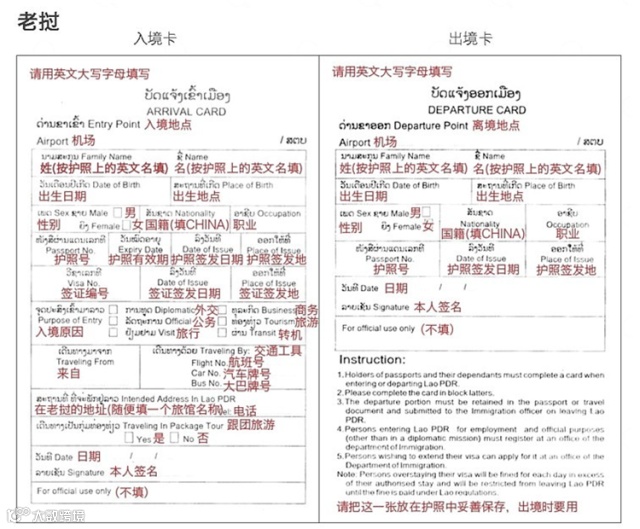 老挝
入境卡
出境卡
请用英文大写字母填写
ບັດແຈ້ງເຂົ້າເມືອງ
ARRIVAL CARD
ດ່ານຂາເຂົ້າ Entry Point 入境地点
Airport 机场 / ສຕບ
ນາມສະກຸນ Family Name ຊື່ Name
姓(按护照上的英文名填) 名(按护照上的英文名填)
ວັນເດືອນປີເກີດ Date of Birth ສະຖານທີ່ເກີດ Place of Birth
出生日期 出生地点
ເພດ Sex ຊາຍ Male 男 ສັນຊາດ Nationality ອາຊີບ Occupation
性别 ຍິງ Female 女 国籍(填CHINA) 职业
ໜັງສືຜ່ານແດນເລກທີ ວັນໝົດອາຍຸ ລົງວັນທີ ອອກໃຫ້ທີ່
Passport No. Expiry Date Date of Issue Place of Issue
护照号 护照有效期 护照签发日期 护照签发地
ວີຊາເລກທີ ລົງວັນທີ ອອກໃຫ້ທີ່
Visa No. Date of Issue Place of Issue
签证编号 签证签发日期 签证签发地
ຈຸດປະສົງເຂົ້າມາລາວ ການທູດ Diplomatic 外交 ທຸລະກິດ Business 商务
Purpose of Entry ລັດຖະການ Official 公务 ທ່ອງທ່ຽວ Tourism 旅游
入境原因 ຢ້ຽມຢາມ Visit 旅行 ຜ່ານ Transit 转机
ເດີນທາງມາຈາກ ເດີນທາງດ້ວຍ Traveling By: 交通工具
Traveling From Flight No. 航班号
来自 Car No. 汽车牌号
Bus No. 大巴牌号
ສະຖານທີ່ ທີ່ຈະພັກຢູ່ລາວ Intended Address In Lao PDR
在老挝的地址(随便填一个旅馆名称) Tel: 电话
ເດີນທາງເປັນກຸ່ມທ່ອງທ່ຽວ Traveling In Package Tour 跟团旅游
Yes 是 No 否
ວັນທີ Date 日期 / /
ລາຍເຊັນ Signature 本人签名
For official use only (不填)
请用英文大写字母填写
ບັດແຈ້ງອອກເມືອງ
DEPARTURE CARD
ດ່ານຂາອອກ Departure Point 离境地点
Airport 机场 / ສຕບ
ນາມສະກຸນ Family Name ຊື່ Name
姓(按护照上的英文名填) 名(按护照上的英文名填)
ວັນເດືອນປີເກີດ Date of Birth ສະຖານທີ່ເກີດ Place of Birth
出生日期 出生地点
ເພດ Sex ຊາຍ Male 男 ສັນຊາດ ອາຊີບ
性别 ຍິງ Female 女 Nationality Occupation
国籍(填CHINA) 职业
ໜັງສືຜ່ານແດນເລກທີ ລົງວັນທີ ອອກໃຫ້ທີ່
Passport No. Date of Issue Place of Issue
护照号 护照签发日期 护照签发地
ວັນທີ Date 日期 / /
ລາຍເຊັນ Signature 本人签名
For official use only (不填)
Instruction:
1.Holders of passports and their dependants must complete a card when
entering or departing Lao PDR.
2.Please complete the card in block latters.
3.The departure portion must be retained in the passport or travel
document and submitted to the Immigration officer on leaving Lao
PDR.
4.Persons entering Lao PDR for employment and official purposes
(other than in a diplomatic mission) must register at an office of the
department of Immigration.
5.Persons wishing to extend their visa can apply for it at an office of the
Department of Immigration.
Note: Persons overstaying their visa will be fined for each day in excess
of their authorised stay and will be restricted from leaving Lao PDR
until the fine is paid under Lao regulations.
请把这一张放在护照中妥善保存，出境时要用